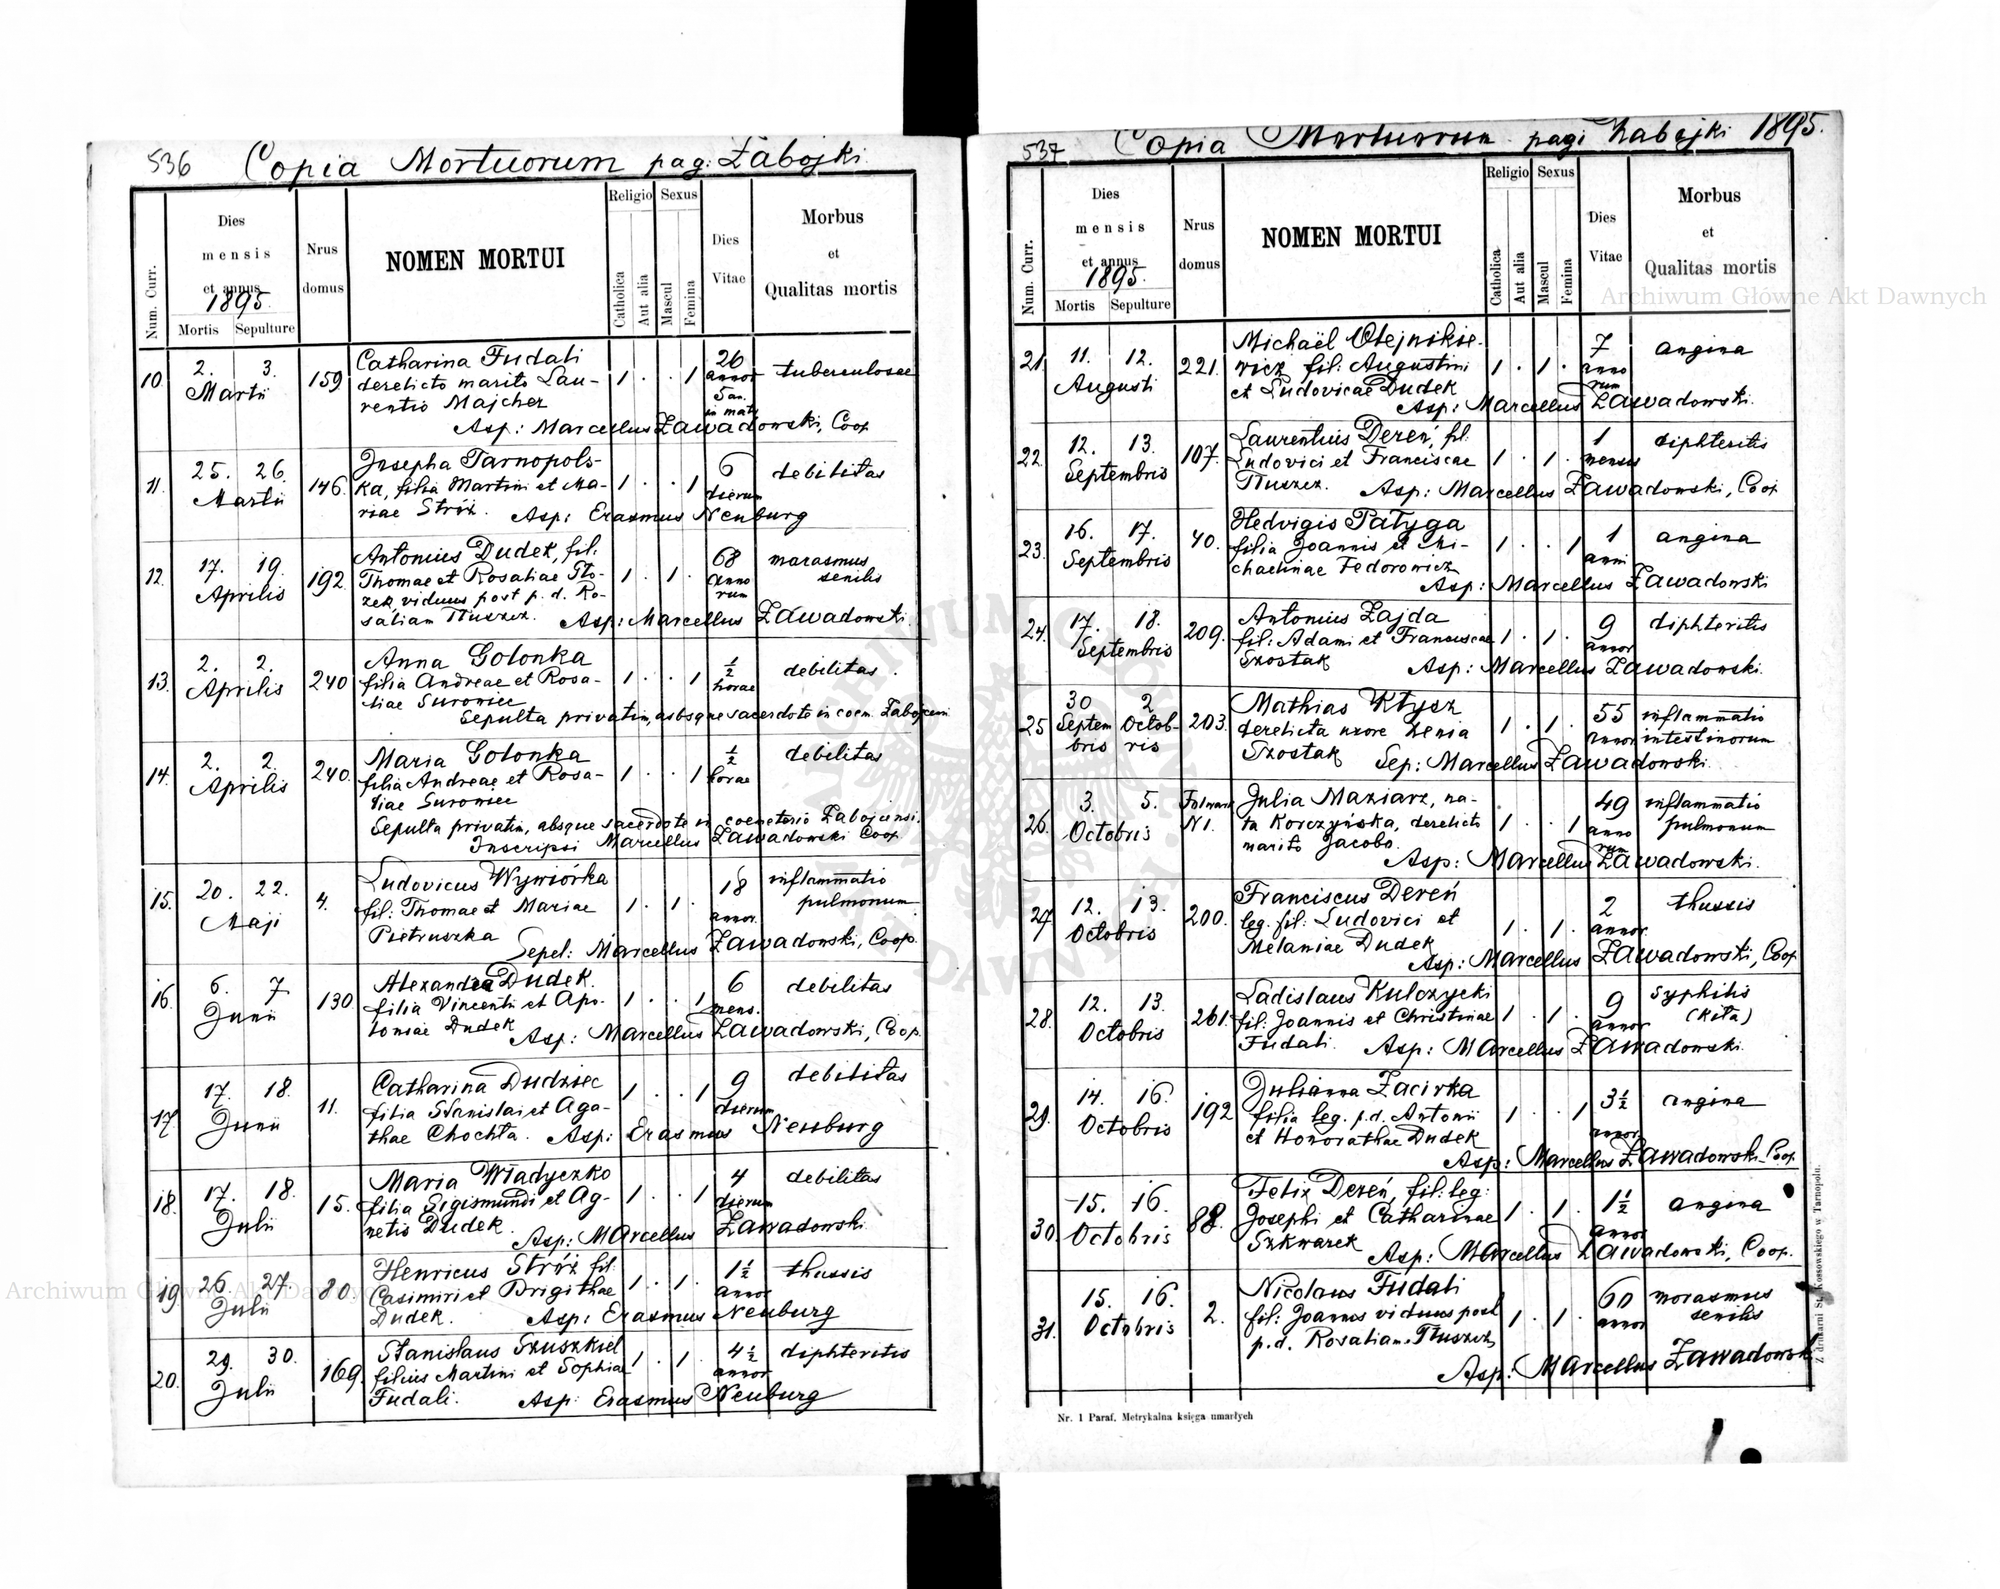 536 Copia Mortuorum pag: Zabojki.
Num. Curr.
Dies
mensis
et annus
1895.
Mortis Sepulture
Nrus
domus
NOMEN MORTUI
Religio
Catholica
Aut alia
Sexus
Mascul
Femina
Dies
Vitae
Morbus
et
Qualitas mortis
10. 2. 3. Martii 159 Catharina Fudali 1 . . 1 26 annor tuberculosae
derelicto marito Lau-
rentio Majcher
Asp: Marcellus Zawadowski, Coop
11. 25. 26. Martii 146. Josepha Tarnopols- 1 . . 1 6 dierum debilitas
ka, filia Martini et Ma-
riae Stróż. Asp: Erasmus Neuburg
12. 17. 19. Aprilis 192 Antonius Dudek, fil: 1 . 1 . 68 anno rum marasmus senilis
Thomae et Rosaliae Sto-
zek, viduus post p. d. Ro-
saliam Tłuszcz. Asp: Marcellus Zawadowski.
13. 2. 2. Aprilis 240 Anna Golonka 1 . . 1 ½ horae debilitas.
filia Andreae et Rosa-
liae Surowiec
Sepulta privatim, absque sacerdote in coem. Zabojcen
14. 2. 2. Aprilis 240. Maria Golonka 1 . . 1 ½ horae debilitas
filia Andreae et Rosa-
liae Surowiec
Sepulta privatim, absque sacerdote in coemeterio Zabojcensi.
Inscripsi Marcellus Zawadowski Coop
15. 20. 22. Maji 4. Ludovicus Wywiórka 1 . 1 . 18 annor. inflammatio pulmonum
fil: Thomae et Mariae
Pietruszka Sepel: Marcellus Zawadowski, Coop.
16. 6. 7 Junii 130. Alexandra Dudek. 1 . . 1 6 mens. debilitas
filia Vincentii et Apo-
loniae Dudek Asp: Marcellus Zawadowski, Coop.
17. 17. 18. Junii 11. Catharina Dudziec 1 . . 1 9 dierum debilitas
filia Stanislai et Aga-
thae Chochla. Asp: Erasmus Neuburg
18. 17. 18. Julii 15. Maria Władyczko 1 . . 1 4 dierum debilitas
filia Sigismundi et Ag-
netis Dudek. Asp: Marcellus Zawadowski
19. 26. 27. Julii 80. Henricus Stróż fil: 1 . 1 . 1½ annor thussis
Casimiri et Brigithae
Dudek. Asp: Erasmus Neuburg
20. 29. 30. Julii 169. Stanislaus Szuszkiel 1 . 1 . 4½ annor diphteritis
filius Martini et Sophia
Fudali. Asp: Erasmus Neuburg
537 Copia Mortuorum pagi Zabojki 1895.
Num. Curr.
Dies
mensis
et annus
1895.
Mortis Sepulture
Nrus
domus
NOMEN MORTUI
Religio
Catholica
Aut alia
Sexus
Mascul
Femina
Dies
Vitae
Morbus
et
Qualitas mortis
21. 11. 12. Augusti 221. Michaël Olejnikie- 1 . 1 . 7 anno rum angina
wicz fil: Augustini
et Ludovicae Dudek
Asp: Marcellus Zawadowski.
22. 12. 13. Septembris 107. Laurentius Dereń, fil: 1 . 1 . 1 mensis diphteritis
Ludovici et Franciscae
Tłuszcz. Asp: Marcellus Zawadowski, Coop
23. 16. 17. Septembris 40. Hedvigis Pałyga 1 . . 1 1 anni angina
filia Joannis et Mi-
chaelinae Fedorowicz
Asp: Marcellus Zawadowski
24. 17. 18. Septembris 209. Antonius Zajda 1 . 1 . 9 annor diphteritis
fil: Adami et Franciscae
Szostak Asp: Marcellus Zawadowski.
25 30 Septem bris 2 Octob- ris 203. Mathias Kłysz 1 . 1 . 55 annor inflammatio intestinorum
derelicta uxore Xenia
Szostak Sep: Marcellus Zawadowski.
26. 3. 5. Octobris Folwark N1. Julia Maziarz, na- 1 . . 1 49 anno rum inflammatio pulmonum
ta Korczyńska, derelicto
marito Jacobo.
Asp: Marcellus Zawadowski.
27. 12. 13. Octobris 200. Franciscus Dereń 1 . 1 . 2 annor. thussis
leg. fil: Ludovici et
Melaniae Dudek
Asp: Marcellus Zawadowski, Coop
28. 12. 13. Octobris 261. Ladislaus Kulczycki 1 . 1 . 9 annor syphilis (Kiła)
fil: Joannis et Christinae
Fudali. Asp: Marcellus Zawadowski.
29. 14. 16. Octobris 192 Julianna Zacirka 1 . . 1 3½ annor angina
filia leg. p.d. Antonii
et Honorathae Dudek
Asp: Marcellus Zawadowski Coop.
30. 15. 16. Octobris 88. Felix Dereń, fil: leg: 1 . 1 . 1½ annor angina
Josephi et Catharinae
Szkwarek Asp: Marcellus Zawadowski, Coop.
31. 15. 16. Octobris 2. Nicolaus Fudali 1 . 1 . 60 annor marasmus senilis
fil: Joannis viduus post
p.d. Rosaliam Tłuszcz
Asp: Marcellus Zawadowski
Nr. 1 Paraf. Metrykalna księga umarłych
Z drukarni St. Kossowskiego w Tarnopolu.
Archiwum Główne Akt Dawnych
Archiwum Główne Akt Dawnych
ARCHIWUM GŁÓWNE AKT DAWNYCH